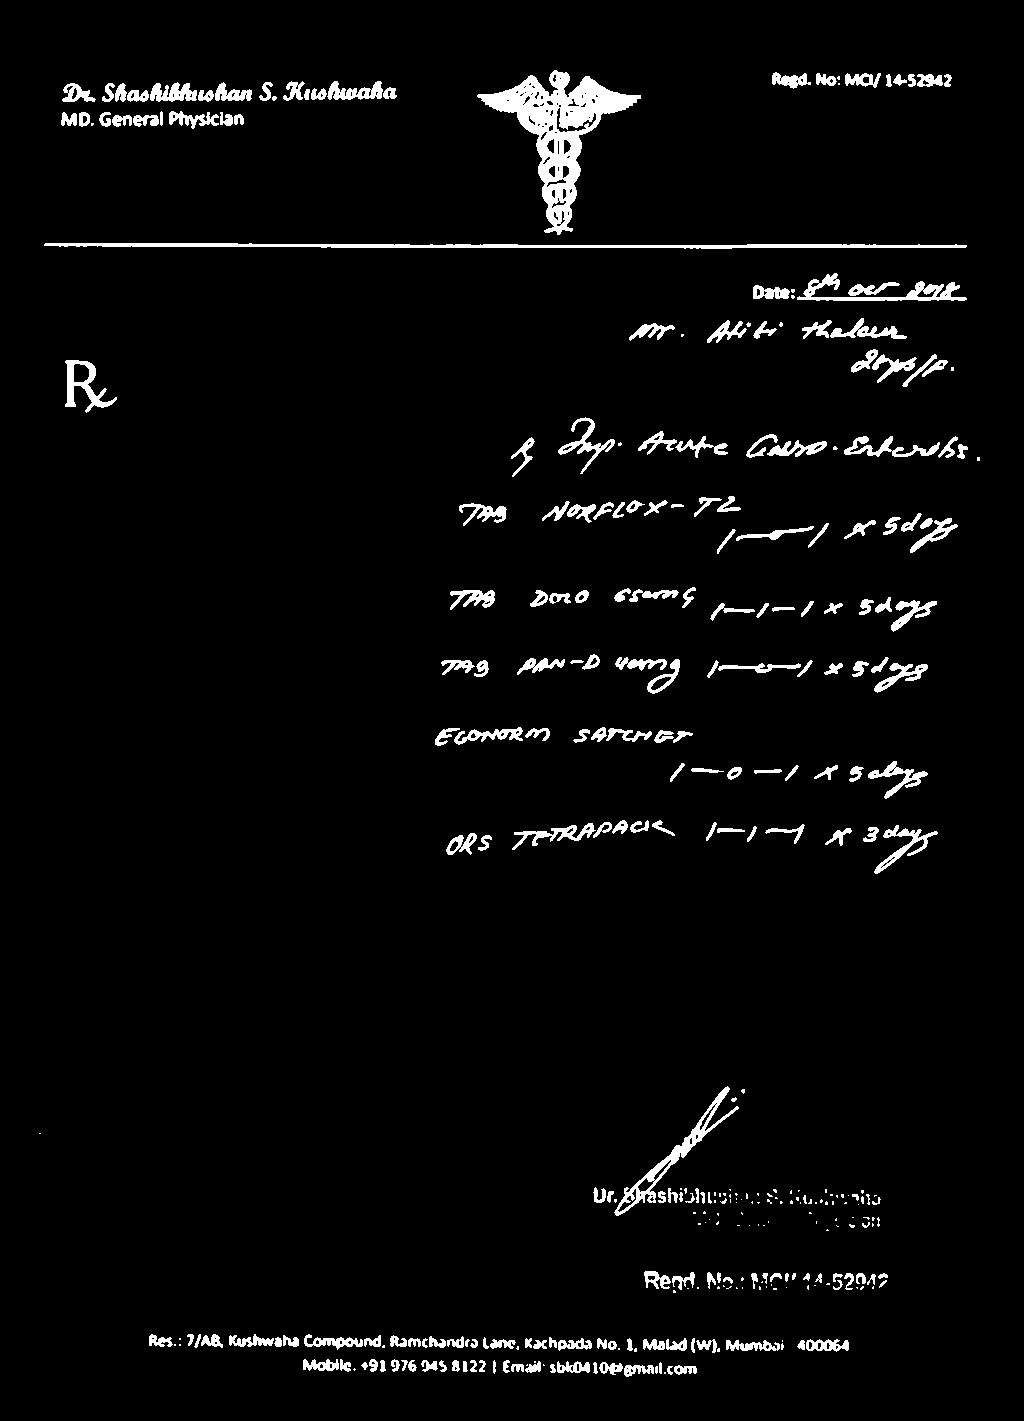 Dr. Shashibhushan S. Kushwaha
MD. General Physician
Regd. No: MCI/ 14-52942
Date: 8th Oct 2018
Rx
Imp. Acute Gastro-Enteritis.
TAB NORFLOX-TZ
1—0—1 x 5days
TAB DOLO 650mg 1—1—1 x 5days
TAB PAN-D 40mg 1—0—1 x 5days
ECONORM SATCHET
1—0—1 x 5days
ORS TETRAPACK 1—1—1 x 3days
Dr. Shashibhushan S. Kushwaha
Regd. No.: MCI/ 14-52942
Res.: 7/AB, Kushwaha Compound, Ramchandra Lane, Kachpada No. 1, Malad (W), Mumbai 400064
Mobile. +91 976 945 8122 | Email: sbk0410@gmail.com